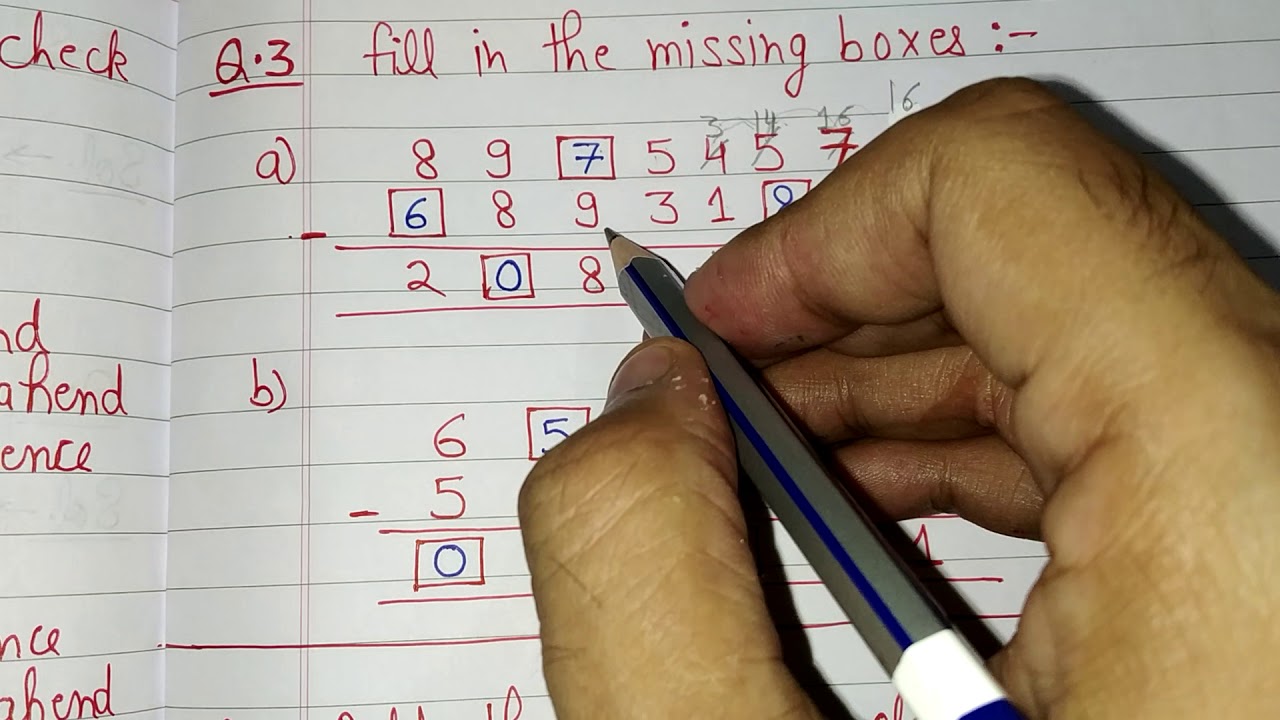 check
Q.3 fill in the missing boxes :-
3 14 16 16
a) 8 9 7 5 4 5 7
6 8 9 3 1 8
-
2 0 8
nd
ahend
b)
6 5
ence
- 5
0 1
nce
ahend